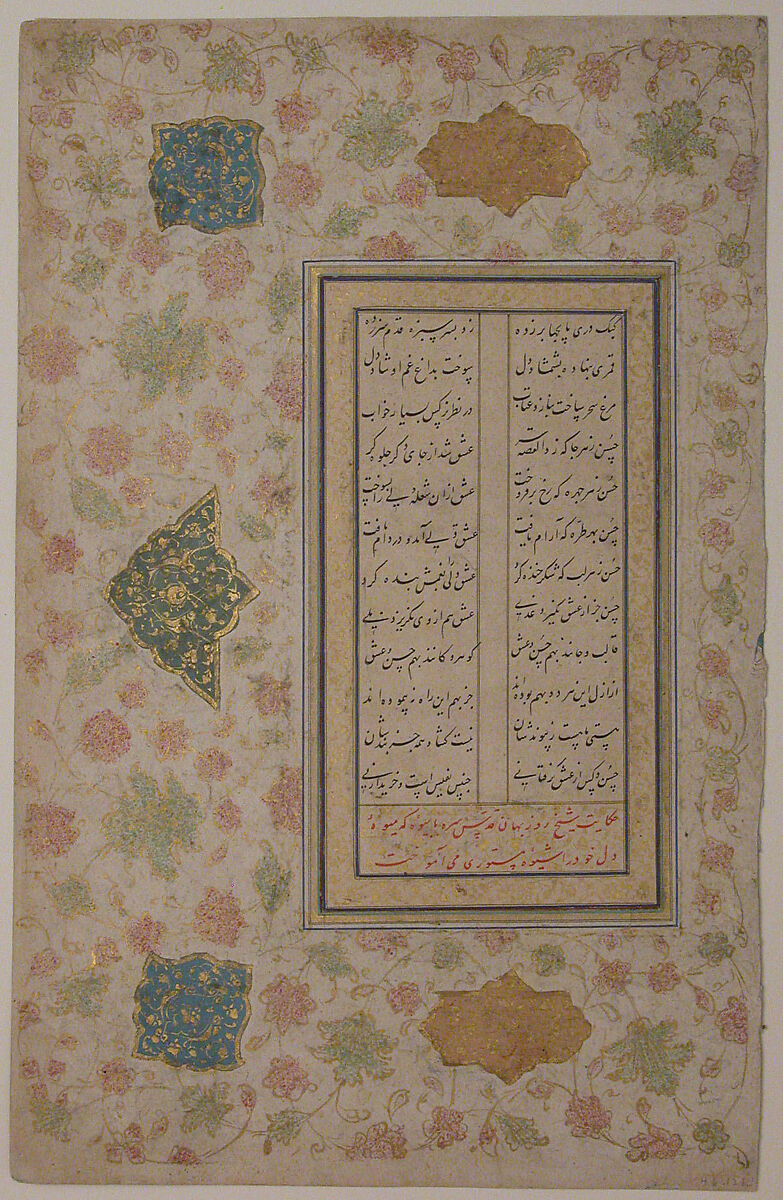 کبک دری پایچها بر زده زد بسر سبزه قدم سر زده
قمری بنهاده بشمشاد دل سوخت بداغ غم او شاد دل
مرغ سحر ساخت بناز و عتاب در نظر نرگس بسیار خواب
حسن ز هر جا که زد القصه سر عشق شد از جای دگر جلوه گر
حسن ز هر چهره که رخ برفروخت عشق از آن شعله دلی را بسوخت
حسن بهر طره که آرام یافت عشق دلی آمد و در دام یافت
حسن ز هر لب که شکر خنده کرد عشق دلی را بغمش بنده کرد
حسن جز از عشق نگیرد عشق هم از وی نگریزد
قالب و جانند بهم حسن و عشق گوهر و کانند بهم حسن و عشق
از ازل این هر دو بهم بوده اند جز بهم این راه نپیموده اند
هستی ما هست ز پیوندشان نیست گشاد همه جز بندشان
حسن و کس از عشق گرفتار نی جنس نفیس است و خریدار نی
حکایت شیخ روزبهان قدس سره با بیوه که میوه
دل خود را شیوه مستوری می آموخت